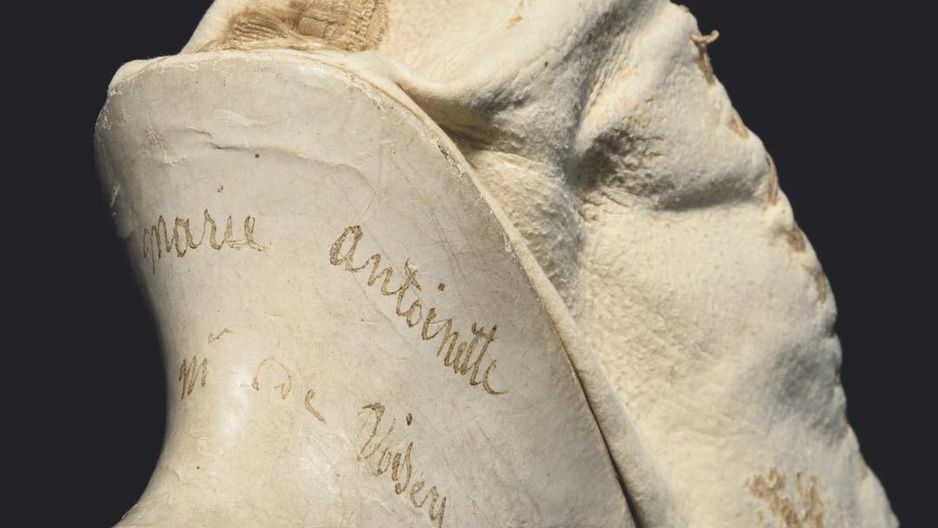 marie antoinette
m de Visery